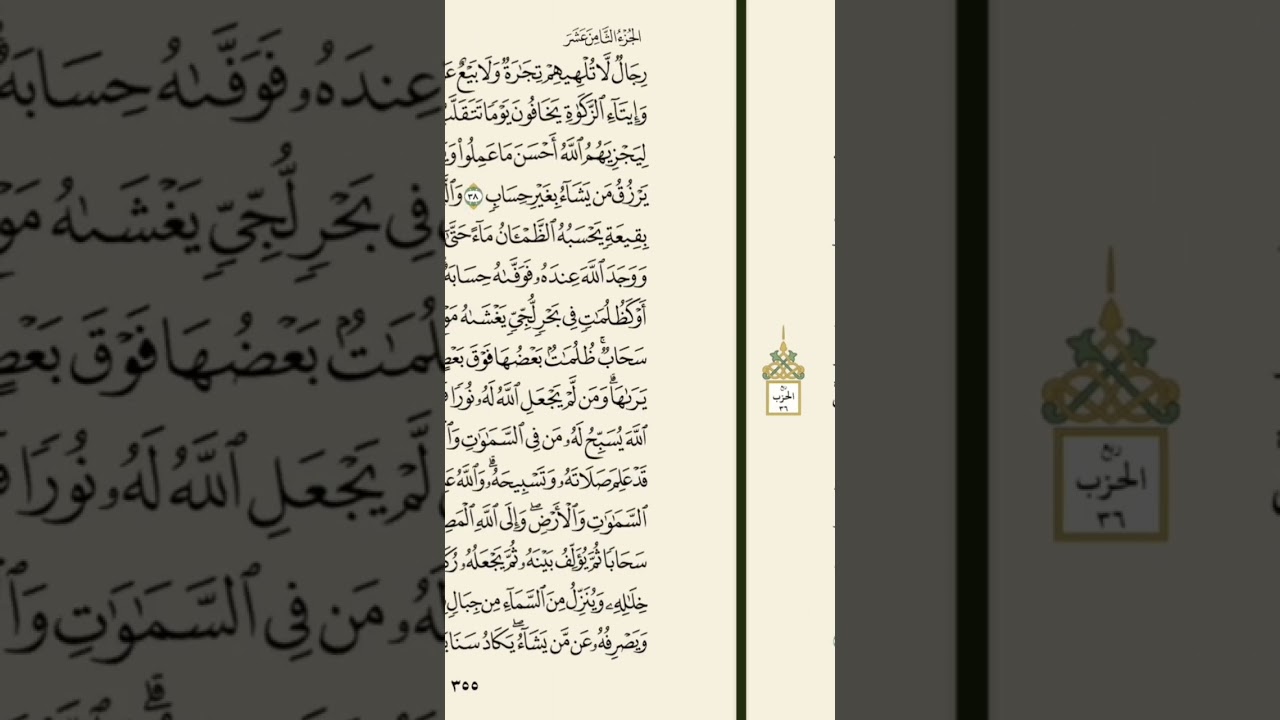 الجُزْءُ الثَّامِنَ عَشَرَ
رِجَالٌ لَّا تُلْهِيهِمْ تِجَٰرَةٌ وَلَا بَيْعٌ
وَإِيتَآءِ ٱلزَّكَوٰةِ يَخَافُونَ يَوْمًا تَتَقَلَّبُ
لِيَجْزِيَهُمُ ٱللَّهُ أَحْسَنَ مَا عَمِلُوا۟
يَرْزُقُ مَن يَشَآءُ بِغَيْرِ حِسَابٍ ٣٨
بِقِيعَةٍ يَحْسَبُهُ ٱلظَّمْـَٔانُ مَآءً حَتَّىٰٓ
وَوَجَدَ ٱللَّهَ عِندَهُۥ فَوَفَّىٰهُ حِسَابَهُۥ
أَوْ كَظُلُمَٰتٍ فِى بَحْرٍ لُّجِّىٍّ يَغْشَىٰهُ
سَحَابٌ ۚ ظُلُمَٰتٌۢ بَعْضُهَا فَوْقَ بَعْضٍ
يَرَىٰهَا ۗ وَمَن لَّمْ يَجْعَلِ ٱللَّهُ لَهُۥ نُورًا
ٱللَّهَ يُسَبِّحُ لَهُۥ مَن فِى ٱلسَّمَٰوَٰتِ
قَدْ عَلِمَ صَلَاتَهُۥ وَتَسْبِيحَهُۥ ۗ وَٱللَّهُ
ٱلسَّمَٰوَٰتِ وَٱلْأَرْضِ ۖ وَإِلَى ٱللَّهِ
سَحَابًا ثُمَّ يُؤَلِّفُ بَيْنَهُۥ ثُمَّ يَجْعَلُهُۥ
خِلَٰلِهِۦ وَيُنَزِّلُ مِنَ ٱلسَّمَآءِ مِن جِبَالٍ
وَيَصْرِفُهُۥ عَن مَّن يَشَآءُ ۖ يَكَادُ سَنَا
٣٥٥
ربع
الحزب
٣٦